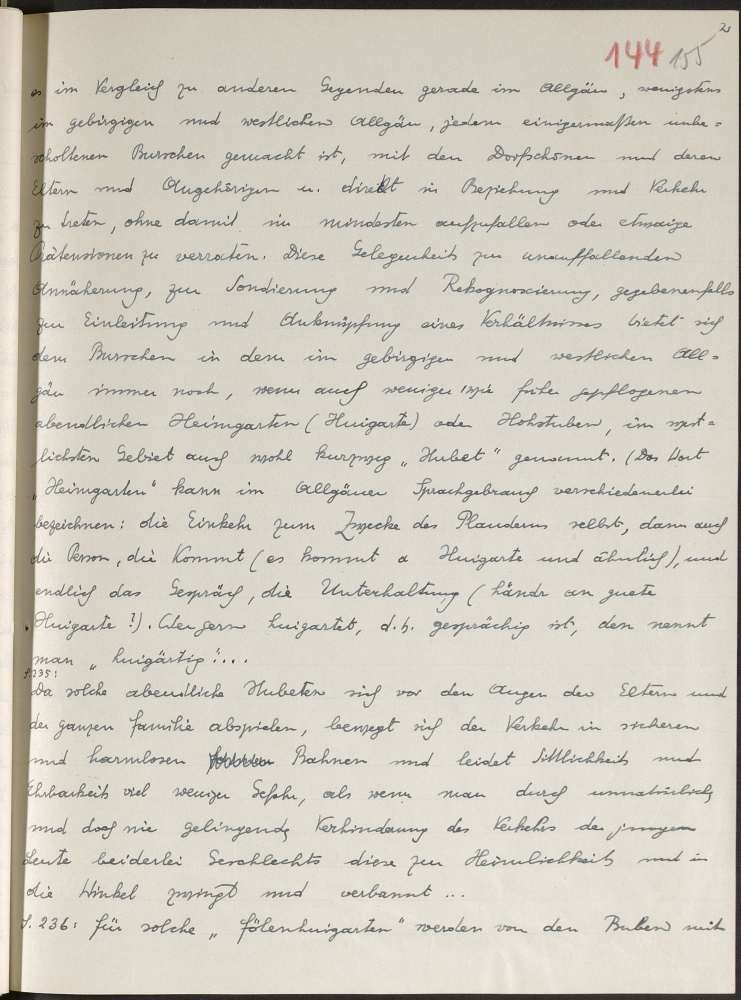 2
144 155
es im Vergleich zu anderen Gegenden gerade im Allgäu, wenigstens
im gebirgigen und westlichen Allgäu, jedem einigermaßen unbe=
scholtenen Burschen gemacht ist, mit den Dorfschönen und deren
Eltern und Angehörigen u. direkt in Beziehung und Verkehr
zu treten, ohne damit im mindesten aufzufallen oder etwaige
Prätensionen zu verraten. Diese Gelegenheit zu unauffallenden
Annäherung, zur Sondierung und Rekognoszierung, gegebenenfalls
zur Einleitung und Anknüpfung eines Verhältnisses bietet sich
dem Burschen in dem im gebirgigen und westlichen All=
gäu immer noch, wenn auch weniger wie früher gepflogenen
abendlichen Heimgarten (Huigarte) oder Hohstuben, im west=
lichsten Gebiet auch wohl kurzweg „Hubet" genannt. (Das Wort
„Heimgarten" kann im Allgäuer Sprachgebrauch verschiedenerlei
bezeichnen: die Einkehr zum Zwecke des Plauderns selbst, dann auch
die Person, die kommt (es kommt a Huigarte und ähnlich), und
endlich das Gespräch, die Unterhaltung (händr an guete
Huigarte?). Wer gern huigartet, d.h. gesprächig ist, den nennt
man „huigärtig"...
S. 235:
Da solche abendliche Hubeten sich vor den Augen der Eltern und
der ganzen Familie abspielen, bewegt sich der Verkehr in sicheren
und harmlosen Bahnen und leidet Sittlichkeit und
Ehrbarkeit viel weniger Gefahr, als wenn man durch unnatürliche
und doch nie gelingende Verhinderung des Verkehrs der jungen
Leute beiderlei Geschlechts diese zur Heimlichkeit und in
die Winkel zwingt und verbannt ...
S. 236: für solche „fölenhuigarten" werden von den Buben mit